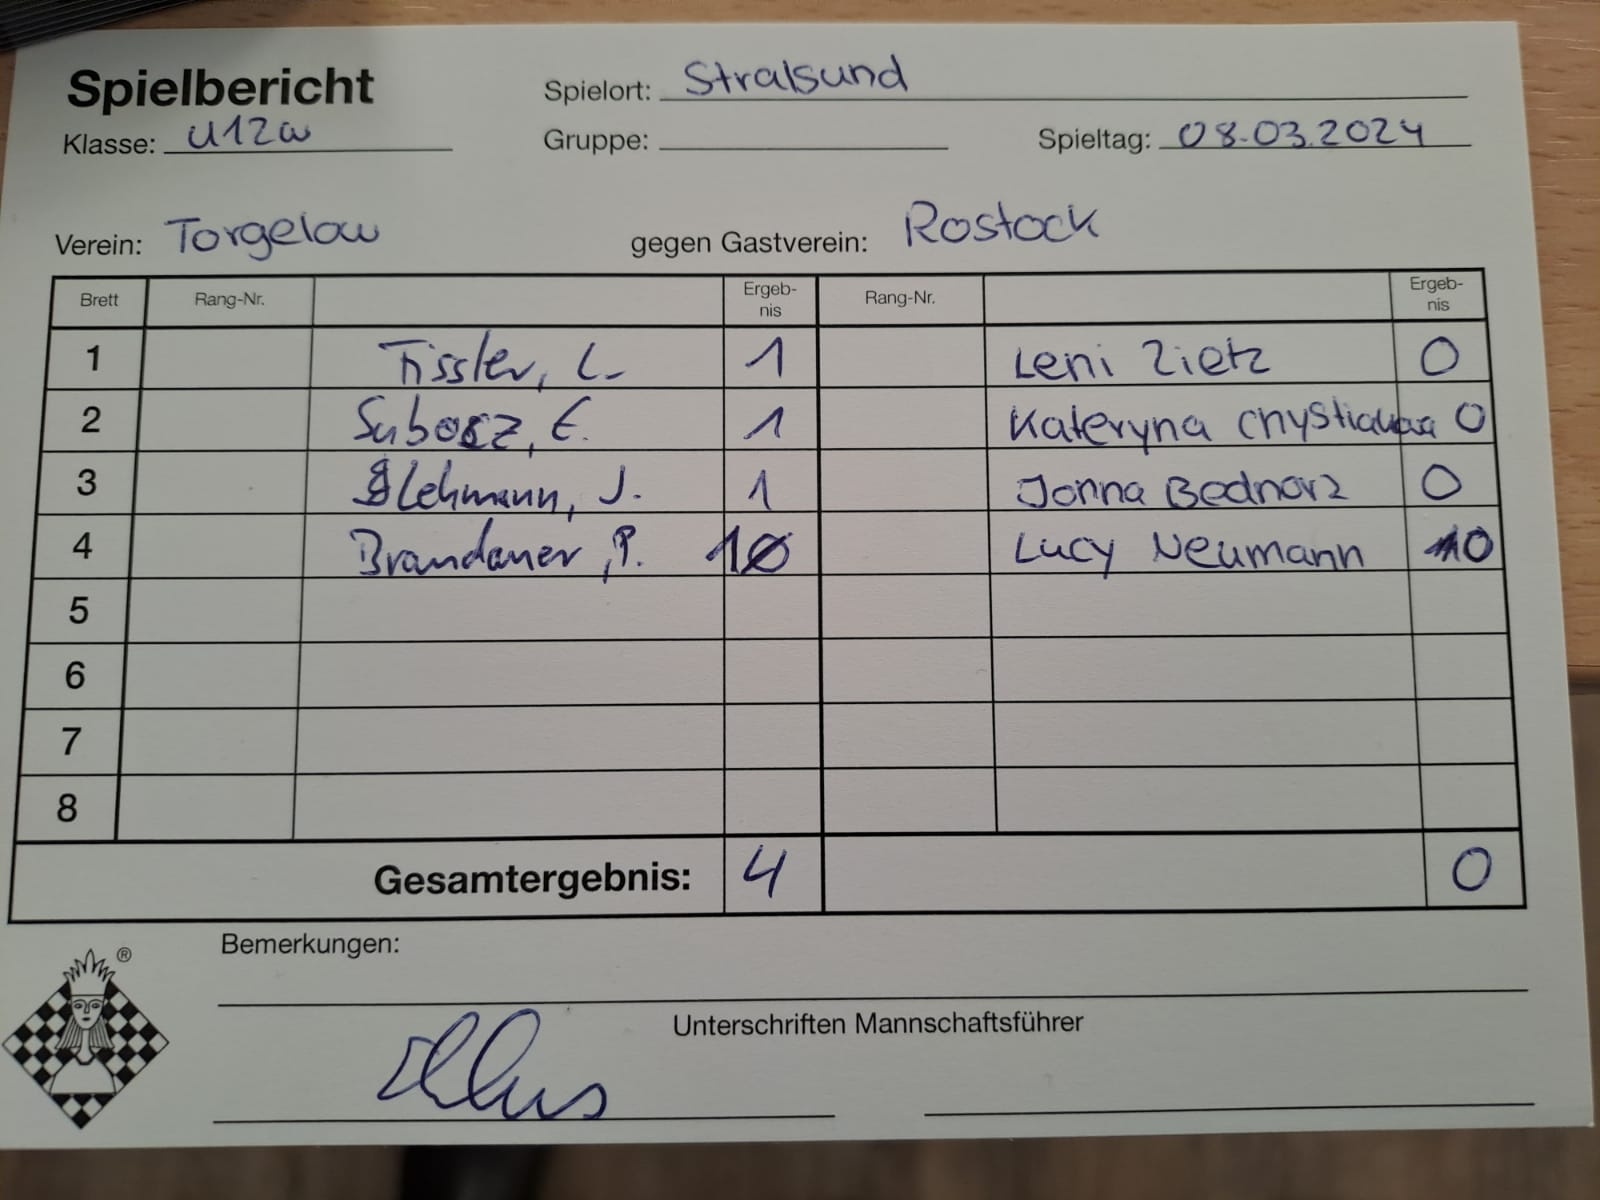 Spielbericht
Spielort: Stralsund
Klasse: U12w Gruppe: Spieltag: 08.03.2024
Verein: Torgelow gegen Gastverein: Rostock
Brett Rang-Nr. Ergeb-nis Rang-Nr. Ergeb-nis
1 Tissler, L. 1 Leni Zietz 0
2 E. 1 Kateryna 0
3 Lehmann, J. 1 Jonna Bednarz 0
4 Brandauer, P. 1 Lucy Neumann 0
5
6
7
8
Gesamtergebnis: 4 0
®
Bemerkungen:
Unterschriften Mannschaftsführer